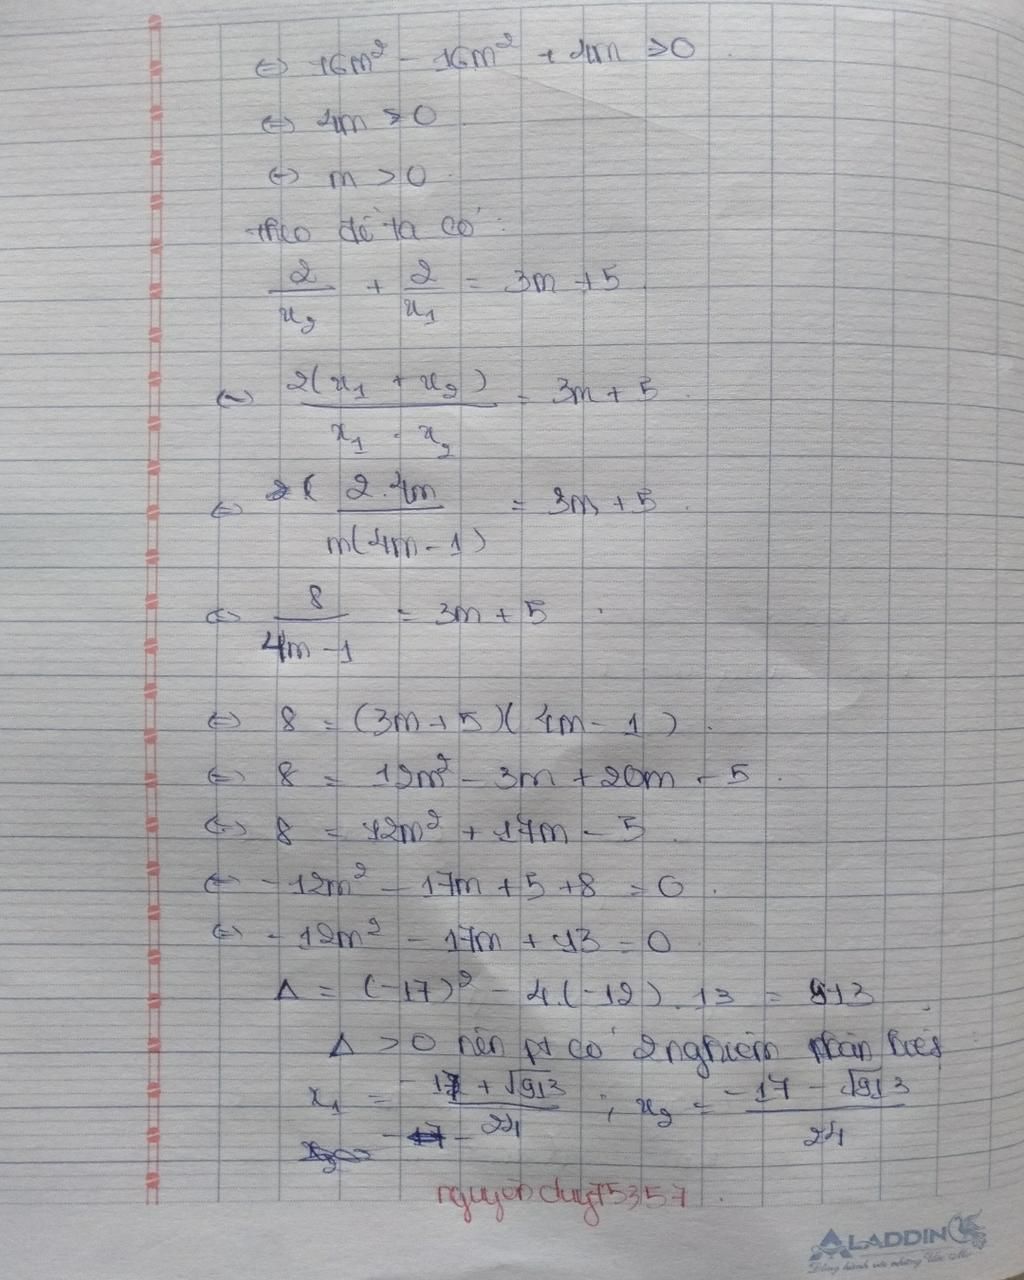 ⇔ 16m² - 16m² + 4m > 0
⇔ 4m > 0
⇔ m > 0
theo đề ta có :
2/x₂ + 2/x₁ = 3m + 5
⇔ 2(x₁ + x₂)/(x₁ . x₂) = 3m + 5
⇔ 2.4m/(m(4m - 1)) = 3m + 5
⇔ 8/(4m - 1) = 3m + 5
⇔ 8 = (3m + 5)(4m - 1)
⇔ 8 = 12m² - 3m + 20m - 5
⇔ 8 = 12m² + 17m - 5
⇔ -12m² - 17m + 5 + 8 = 0
⇔ -12m² - 17m + 13 = 0
Δ = (-17)² - 4.(-12).13 = 913
Δ > 0 nên pt có 2 nghiệm phân biệt
x₁ = (-17 + √913)/24 ; x₂ = (-17 - √913)/24
nguyenduy75357
ALADDIN
Đồng hành với những Ước Mơ